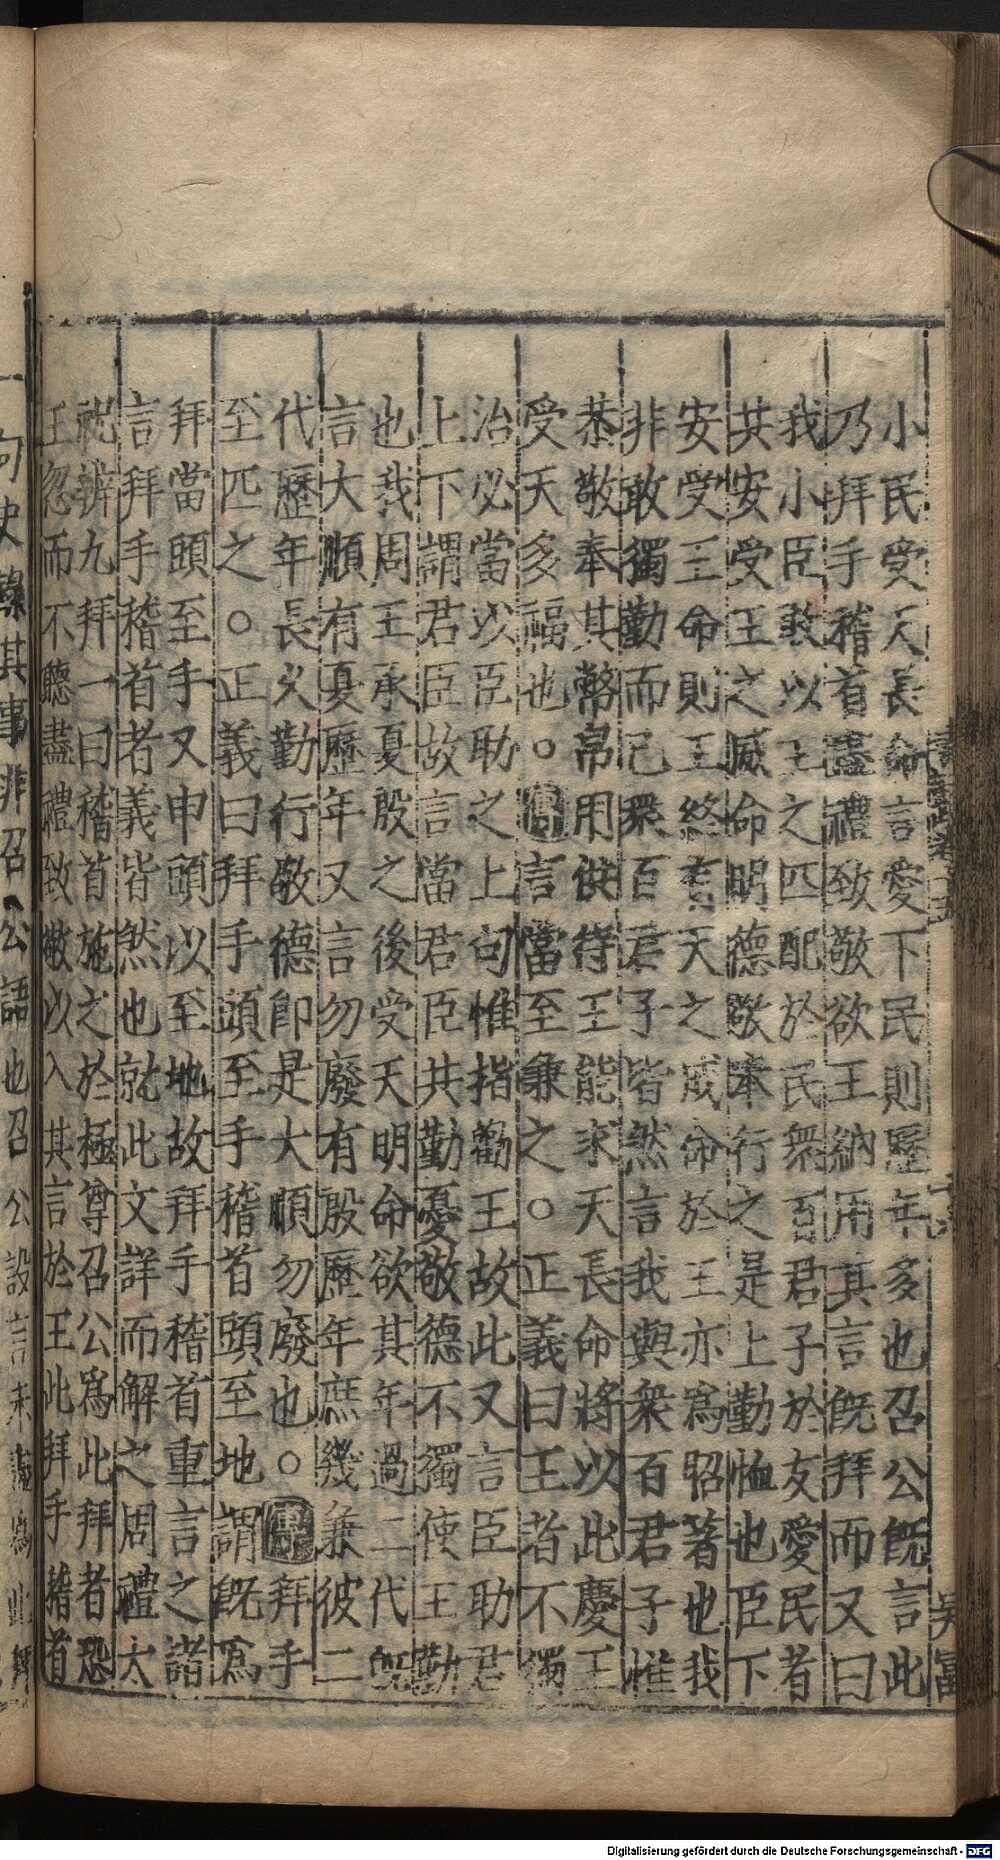 小民受天長命言愛下民則歷年多也召公旣言此
乃拜手稽首盡禮致敬欲王納用其言旣拜而又曰
我小臣敢以王之匹配於民衆百君子於友愛民者
共安受王之威命明德敬奉行之是上勤恤也臣下
安受王命則王終有天之成命於王亦爲昭著也我
非敢獨勤而已衆百君子皆然言我與衆百君子惟
恭敬奉其幣帛用供待王能求天長命將以此慶王
受天多福也○傳言當至兼之○正義曰王者不獨
治必當以臣助之上句惟指勸王故此又言臣助君
上下謂君臣故言當君臣共勤憂敬德不獨使王勤
也我周王承夏殷之後受天明命欲其年過二代旣
言大順有夏歷年又言勿廢有殷歷年庶幾兼彼二
代歷年長久勤行敬德卽是大順勿廢也○傳拜手
至匹之○正義曰拜手頭至手稽首頭至地謂旣爲
拜當頭至手又申頭以至地故拜手稽首重言之諸
言拜手稽首者義皆然也就此文詳而解之周禮太
祝辨九拜一曰稽首施之於極尊召公爲此拜者恐
王忽而不聽盡禮致敬以入其言於王此拜手稽首
吳富
公語也召公設言未
Digitalisierung gefördert durch die Deutsche Forschungsgemeinschaft - DFG